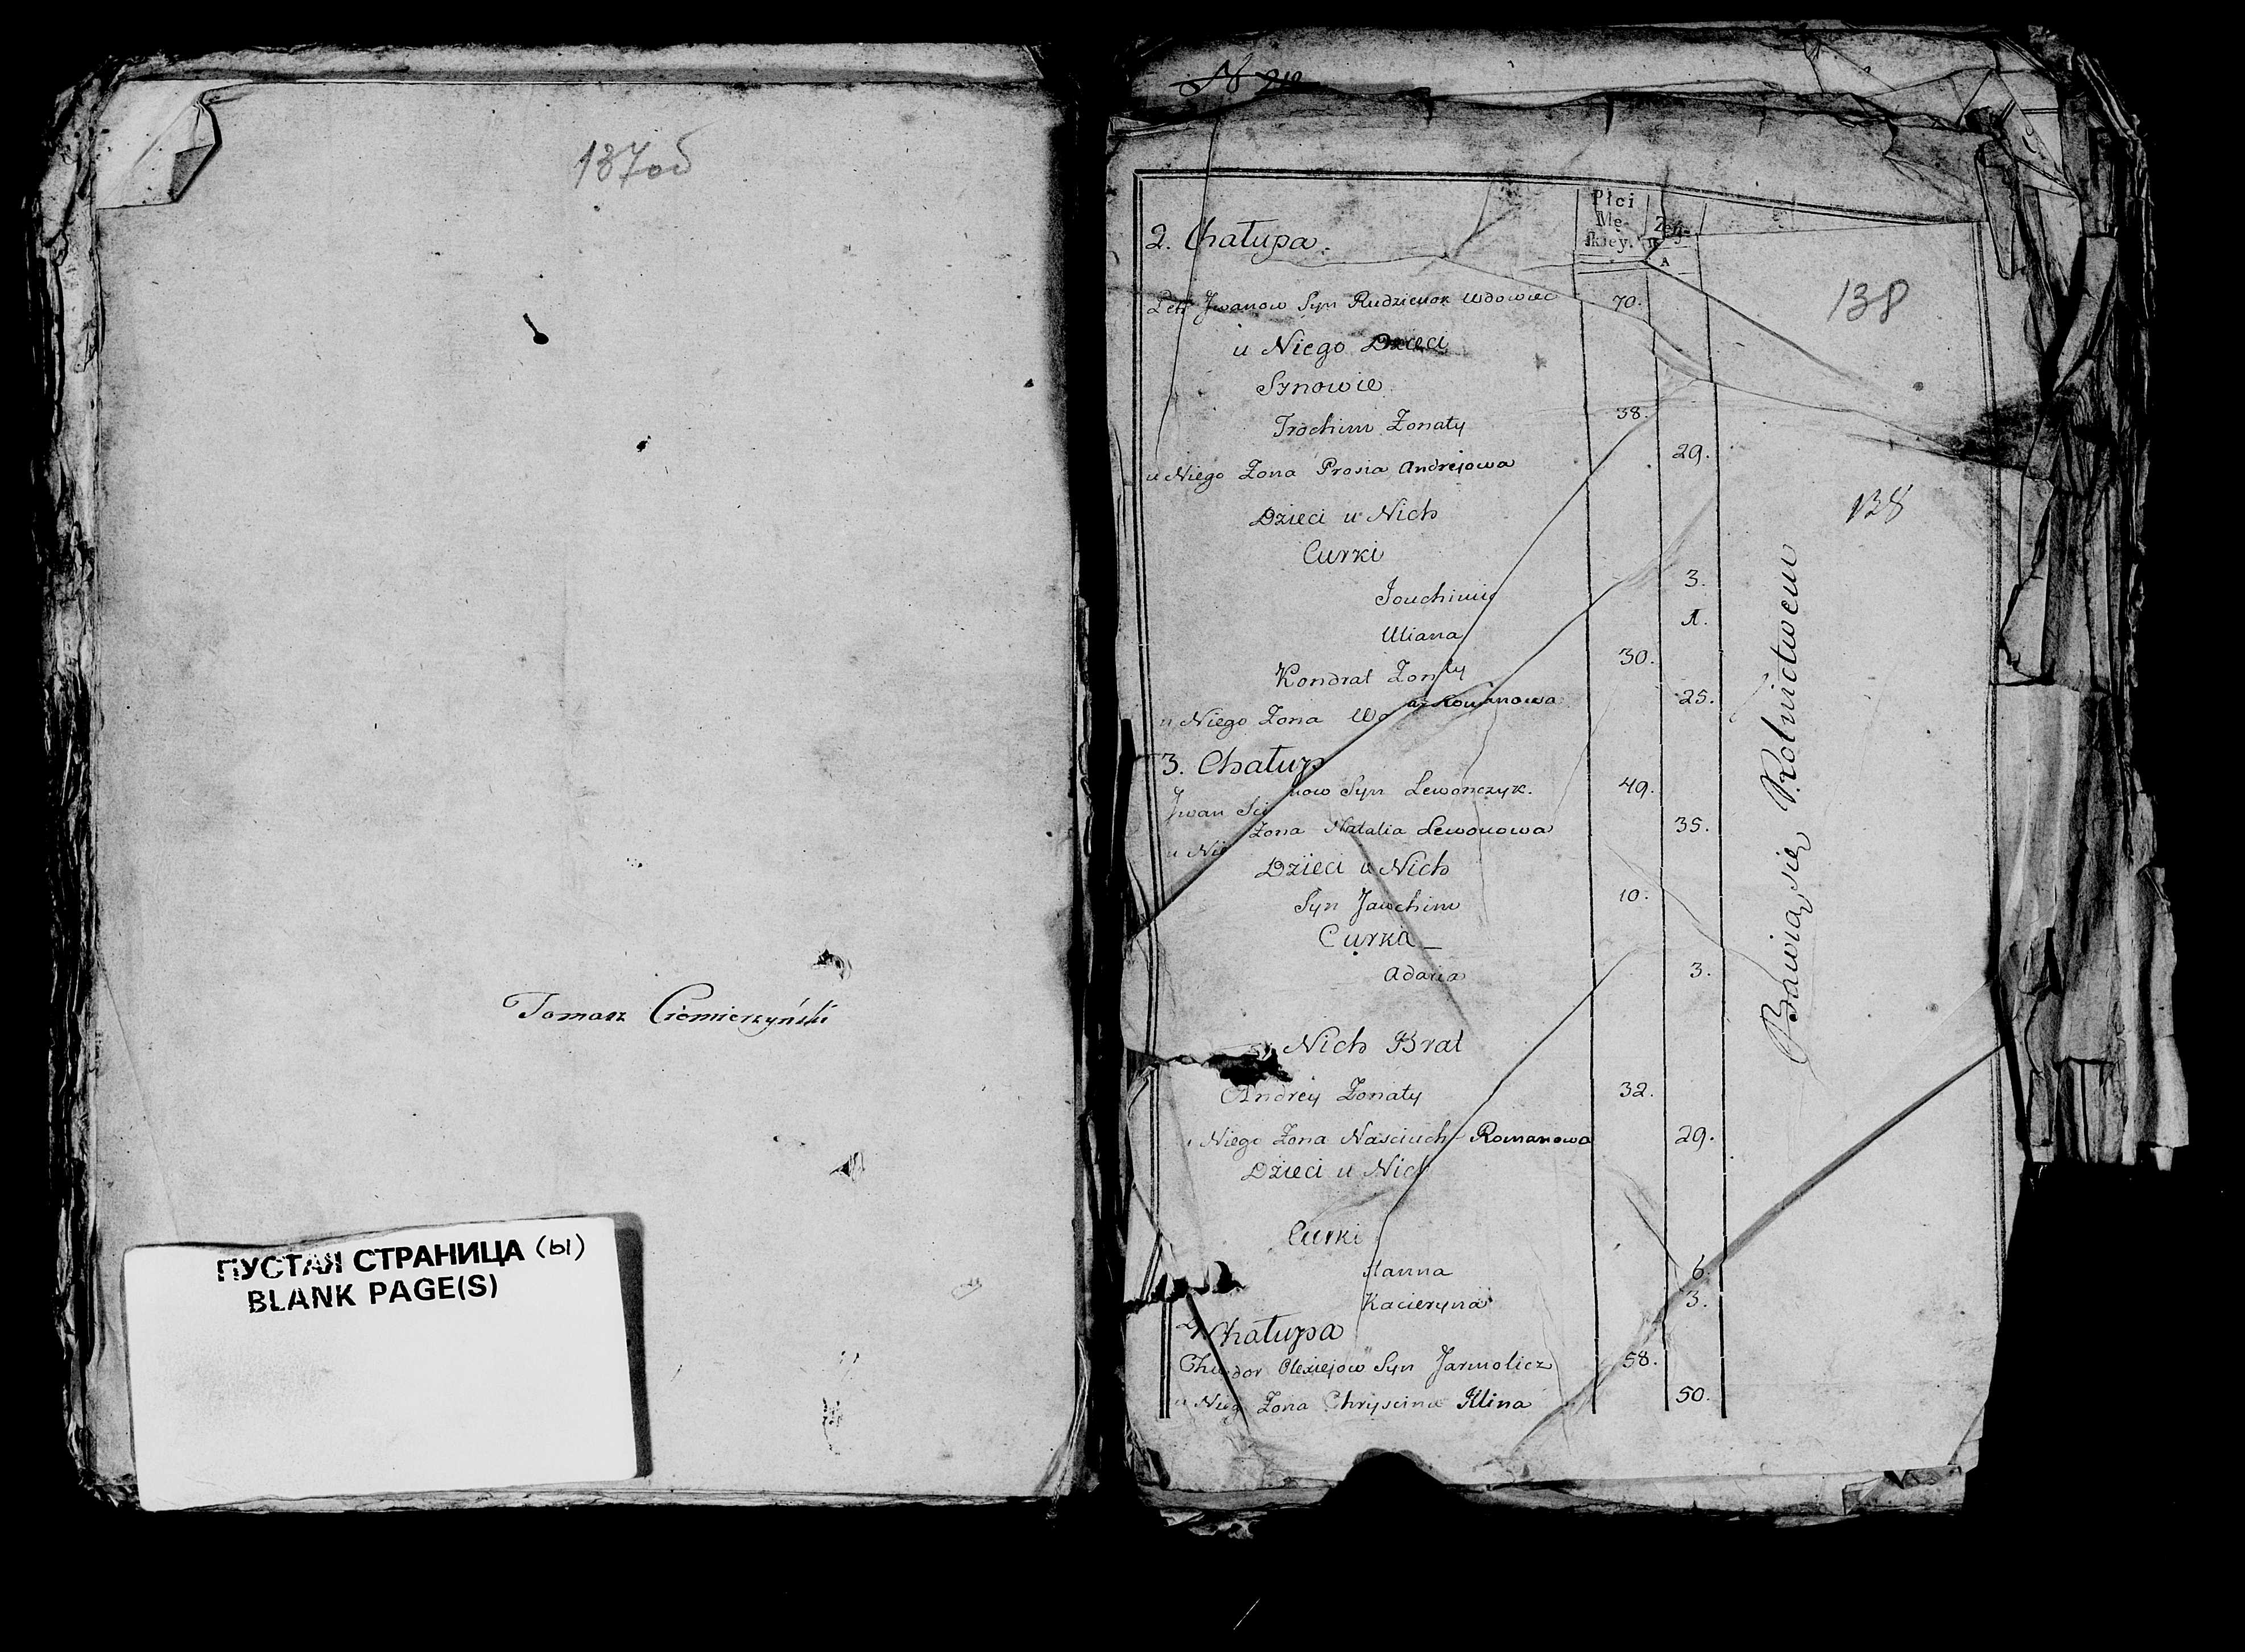 137об
Tomasz Ciemierzyński
ПУСТАЯ СТРАНИЦА (ы)
BLANK PAGE(S)
N 212
Płci
Mę-
skiey.
Żeń-
2. Chałupa.
138
Petr Jwanow Syn Rudzienok Wdowiec 70.
u Niego Dzieci
Synowie
Trochim Żonaty 38.
u Niego Żona Prosia Andrejowa 29.
Dzieci u Nich
138
Curki
Jouchimia 3.
Uliana 1.
Kondrat Żonty 30.
u Niego Żona Romanowa 25.
3. Chałup
Jwan now Syn Lewonczyk. 49.
u Nie Żona Natalia Lewonowa 35.
Dzieci u Nich
Syn Jawchim 10.
Curka
Adaria 3.
Bawią się Rolnictwem
Nich Brat
Andrey Żonaty 32.
u Niego Żona Nasciuch Romanowa 29.
Dzieci u Nich
Curki
Hanna 6.
Kacieryna 3.
4 Chałupa
Chwedor Olexiejow Syn Jarmolicz 58.
u Nieg Żona Chryscina Klina 50.